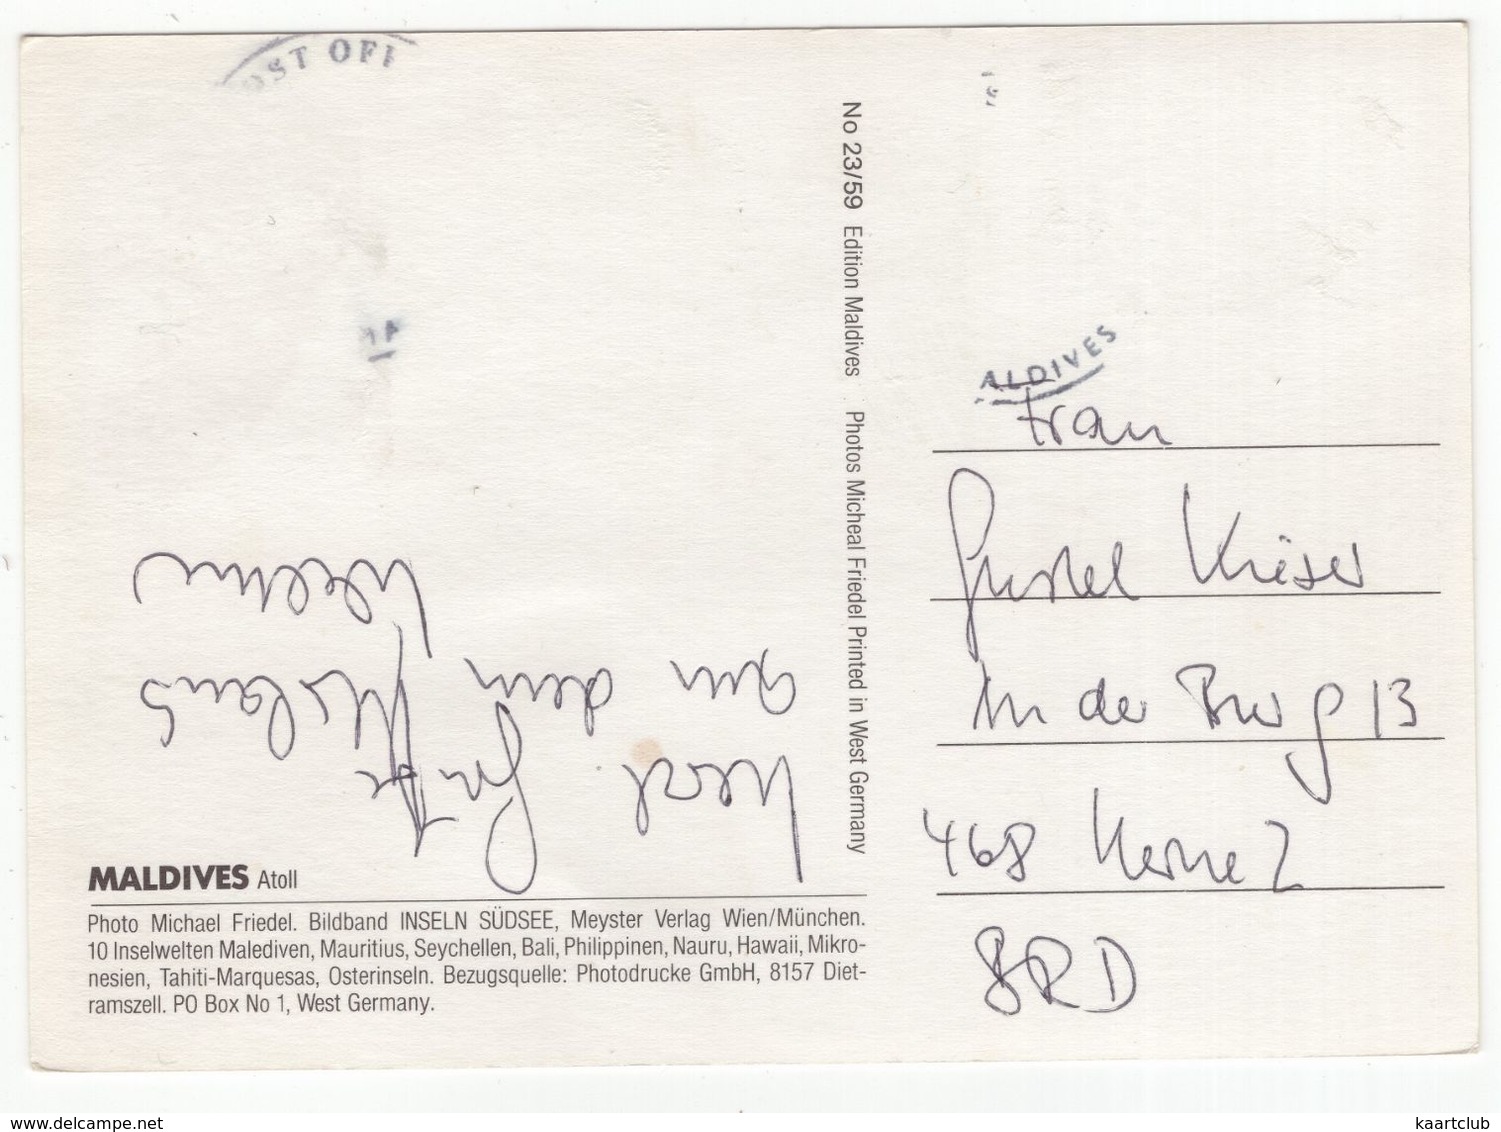 OST OFF
ALDIVES
No 23/59 Edition Maldives Photos Micheal Friedel Printed in West Germany
Frau
Gustel Krieser
In der Burg 13
468 Herne 2
BRD
Herzl. Grüße
aus dem Urlaub
MALDIVES Atoll
Photo Michael Friedel. Bildband INSELN SÜDSEE, Meyster Verlag Wien/München.
10 Inselwelten Malediven, Mauritius, Seychellen, Bali, Philippinen, Nauru, Hawaii, Mikro-
nesien, Tahiti-Marquesas, Osterinseln. Bezugsquelle: Photodrucke GmbH, 8157 Diet-
ramszell. PO Box No 1, West Germany.
kaartclub